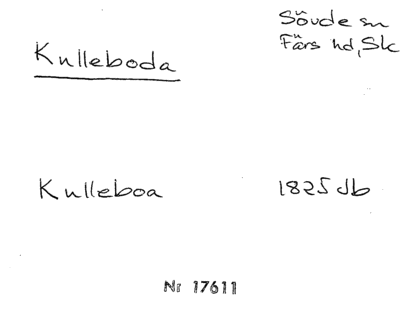 Kulleboda
Sövde sn
Färs hd, Sk
Kulleboa
1825 db
Nr 17611